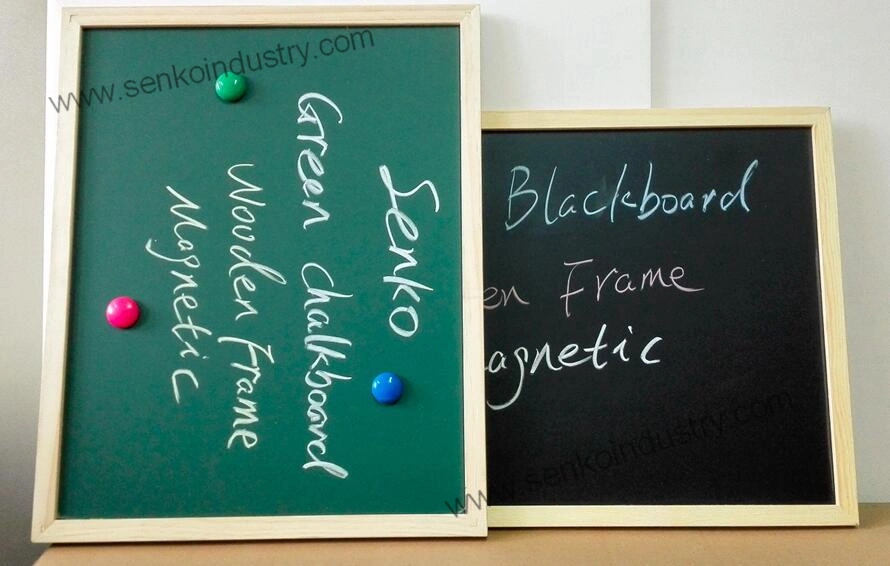 www.senkoindustry.com
Senko
Green chalkboard
Wooden Frame
Magnetic
Blackboard
en Frame
agnetic
www.senkoindustry.com